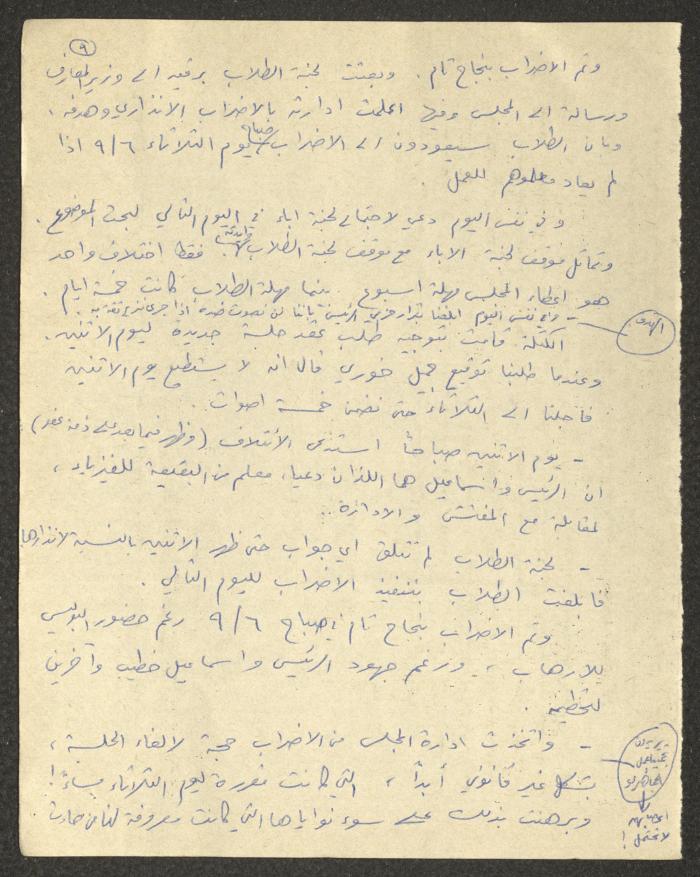 ٩
وتم الاضراب بنجاح تام . وبعثت لجنة الطلاب برقيه الى وزير المعارف
ورسالة الى المجلس وفيها اعلمت ادارته بالاضراب الانذاري وهدفه ،
وبان الطلاب سيعودون الى الاضراب صباح يوم الثلاثاء ٩/٦ اذا
لم يعاد معلموهم للعمل .
وفي نفس اليوم دعي لاجتماع لجنة اباء في اليوم التالي لبحث الموضوع .
وتماثل موقف لجنة الاباء مع موقف لجنة الطلاب . فقط اختلاف واحد
هو اعطاء المجلس مهلة اسبوع . بينما مهلة الطلاب كانت خمسة ايام .
- وفي نفس اليوم ابلغنا بقرار الرئيس باننا لن نصوت ضده اذا جرى نزع ثقة به .
الكتلة قامت بتوجيه طلب عقد جلسة جديدة ليوم الاثنين .
وعندما طلبنا توقيع جميل خوري قال انه لا يستطيع يوم الاثنين
فاجلنا الى الثلاثاء حتى نضمن خمسة اصوات .
- يوم الاثنين صباحاً استدعى الأئتلاف (وظهر فيما بعد على ذمة
ان الرئيس واسماعيل هما اللذان دعيا، معلم من البقيعة للفيزياء ،
لمقابلة مع المفتش والادارة ..
- لجنة الطلاب لم تتلق اي جواب حتى ظهر الاثنين بالنسبة لانذارها
فابلغت الطلاب بتنفيذ الاضراب لليوم التالي .
وتم الاضراب بنجاح تام في صباح ٩/٦ رغم حضور البوليس
للارهاب ، ورغم جهود الرئيس واسماعيل خطيب وآخرين
لتحطيمه .
- واتخذت ادارة المجلس من الاضراب حجة لالغاء الجلسة ،
بشكل غير قانوني أبداً ، التي كانت مقررة ليوم الثلاثاء مساءً !
وبرهنت بذلك على سوء نواياها التي كانت معروفة لنا من